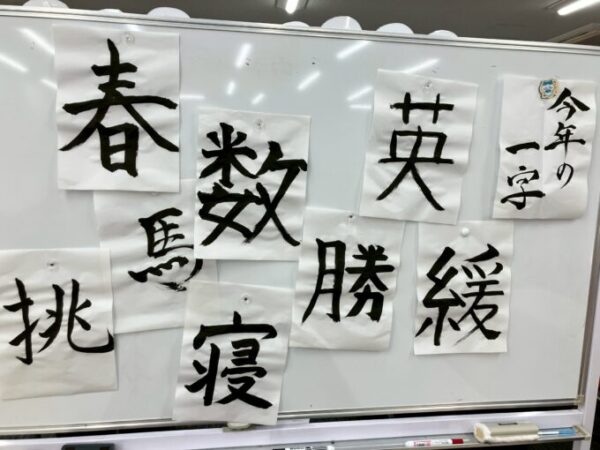 今年の
一字
英
緩
勝
数
寝
春
馬
挑